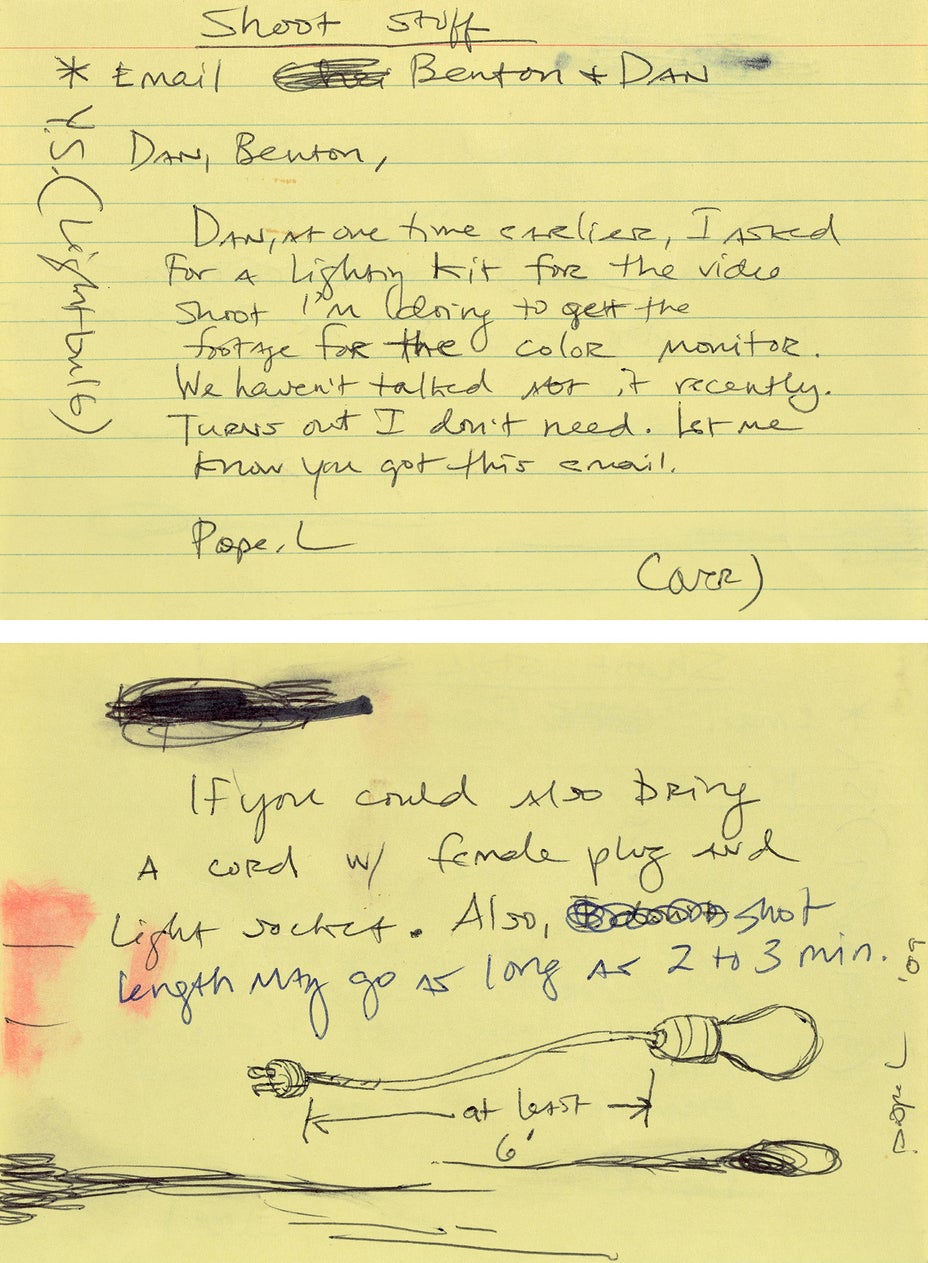 Shoot stuff
* Email Benton + Dan
Y.S. (Lightbulb)
Dan, Benton,
Dan, at one time earlier, I asked
for a lighting kit for the video
shoot I'm doing to get the
footage for the color monitor.
We haven't talked abt it recently.
Turns out I don't need. Let me
know you got this email.
Pope.L
(over)
If you could also bring
A cord w/ female plug and
light socket. Also, shot
length may go as long as 2 to 3 min.
at least
6'
pope L '09